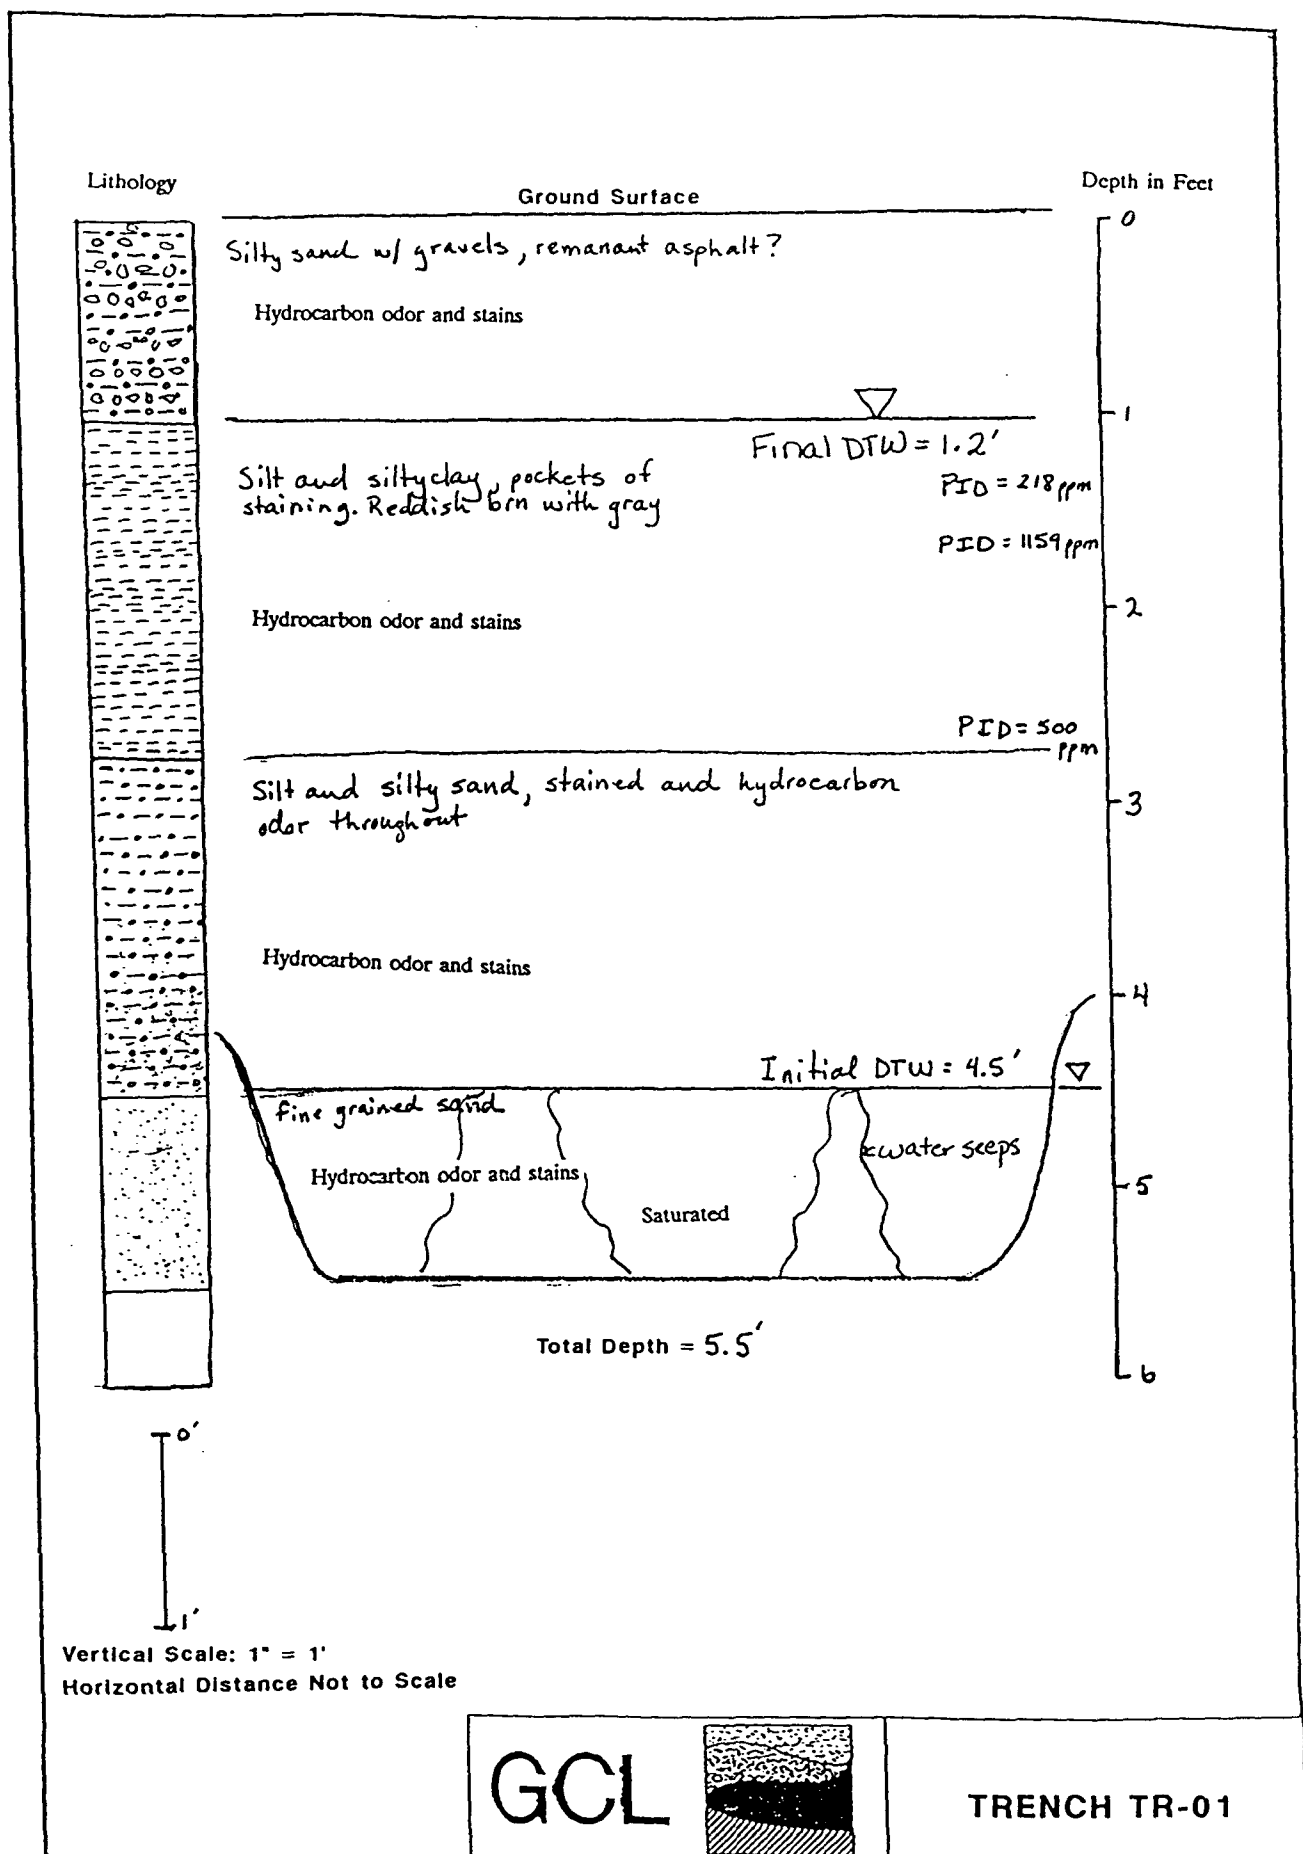 Lithology
Ground Surface
Depth in Feet
0
Silty sand w/ gravels, remanant asphalt?
Hydrocarbon odor and stains
1
Final DTW = 1.2'
Silt and silty clay, pockets of
staining. Reddish brn with gray
PID = 218 ppm
PID = 1159 ppm
2
Hydrocarbon odor and stains
PID = 500
ppm
Silt and silty sand, stained and hydrocarbon
odor throughout
3
Hydrocarbon odor and stains
4
Initial DTW = 4.5'
fine grained sand
water seeps
Hydrocarbon odor and stains
5
Saturated
Total Depth = 5.5'
6
0'
1'
Vertical Scale: 1" = 1'
Horizontal Distance Not to Scale
GCL
TRENCH TR-01